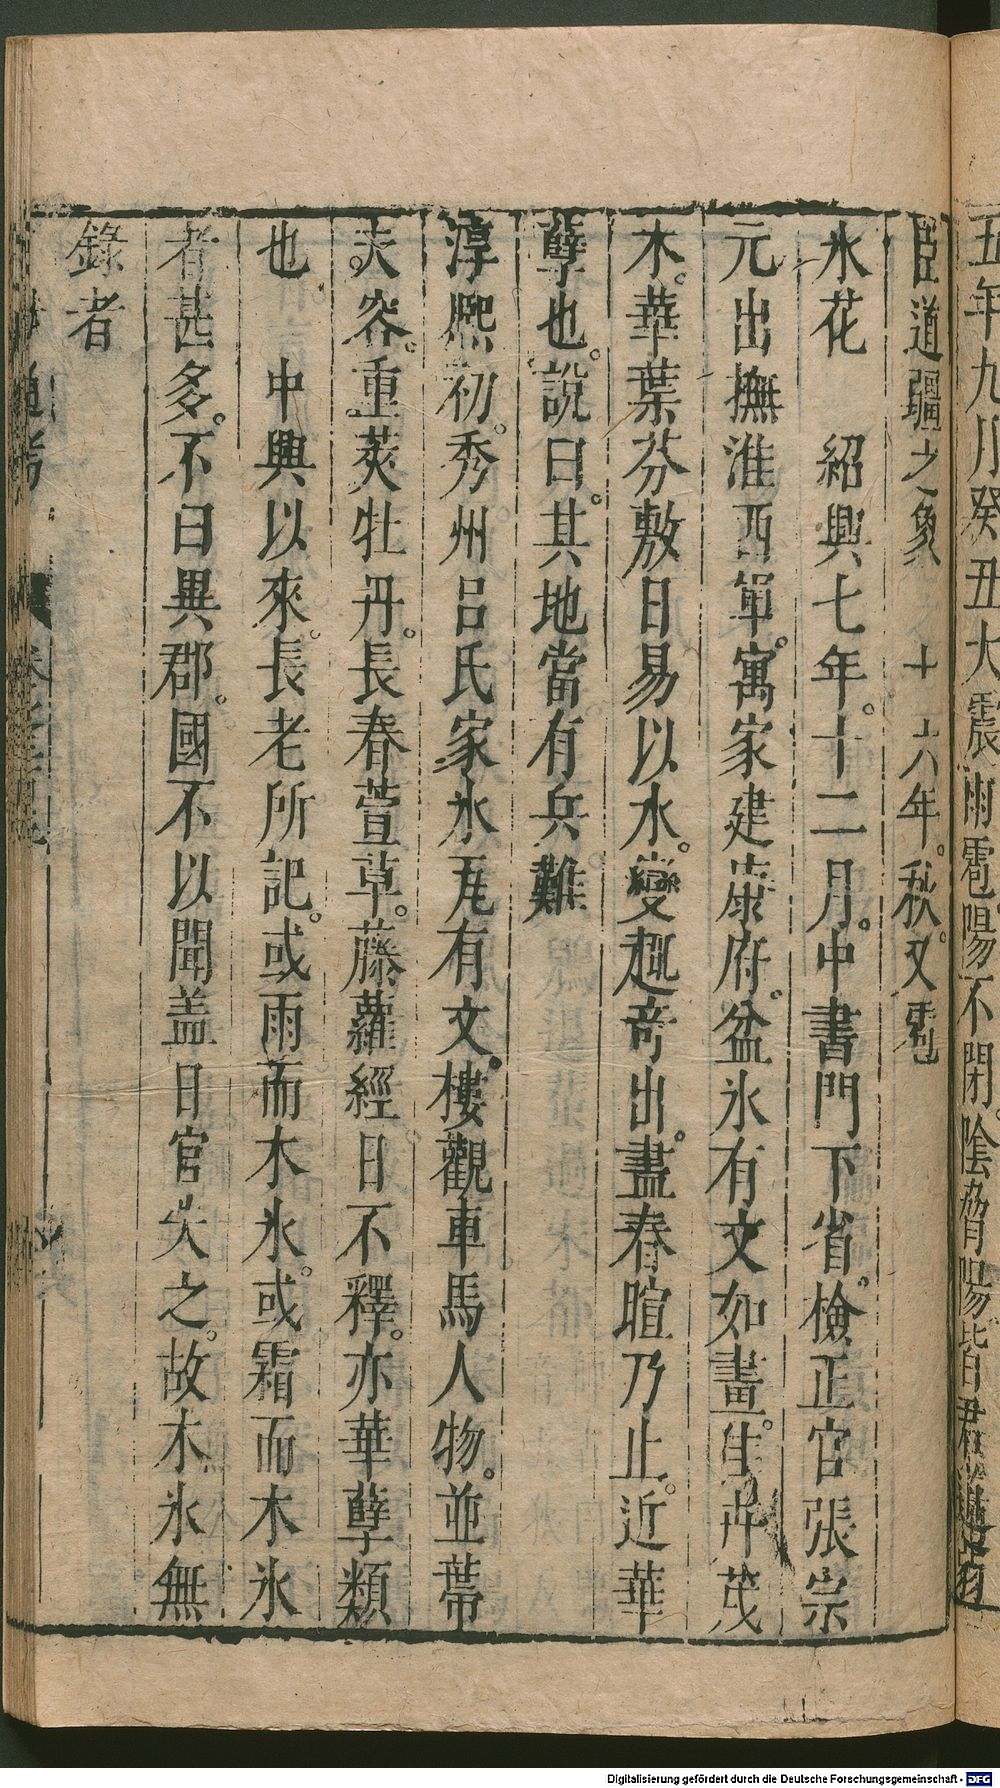 五年九月癸丑大震雨雹陽不閉陰脅陽皆君道
臣道疆之象 十六年秋又雹
氷花 紹興七年十二月中書門下省檢正官張宗
元出撫淮西軍寓家建康府盆氷有文如畫佳卉茂
木華葉芬敷日易以水變趣竒出盡春暄乃止近華
孽也說曰其地當有兵難
淳熙初秀州吕氏家氷瓦有文樓觀車馬人物並蔕
夫容重莢牡丹長春萱草藤蘿經日不釋亦華孽類
也 中興以來長老所記或雨而木氷或霜而木氷
者甚多不曰異郡國不以聞盖日官失之故木氷無
錄者
通考
Digitalisierung gefördert durch die Deutsche Forschungsgemeinschaft - DFG